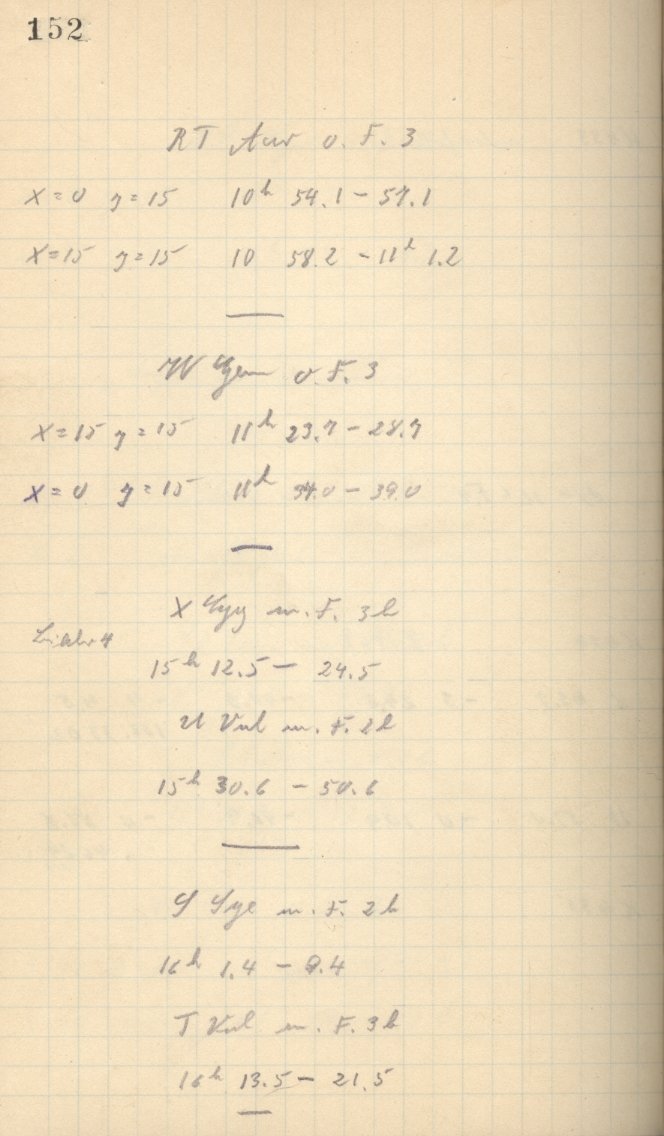 152
RT Aur o. F. 3
X = 0 y = 15 10h 54.1 - 57.1
X = 15 y = 15 10 58.2 - 11h 1.2
W Gem o. F. 3
X = 15 y = 15 11h 23.7 - 28.7
X = 0 y = 15 11h 34.0 - 39.0
X Cyg m. F. 3b
15h 12.5 - 24.5
U Vul m. F. 2b
15h 30.6 - 50.6
S Sge m. F. 2b
16h 1.4 - 9.4
T Vul m. F. 3b
16h 13.5 - 21.5